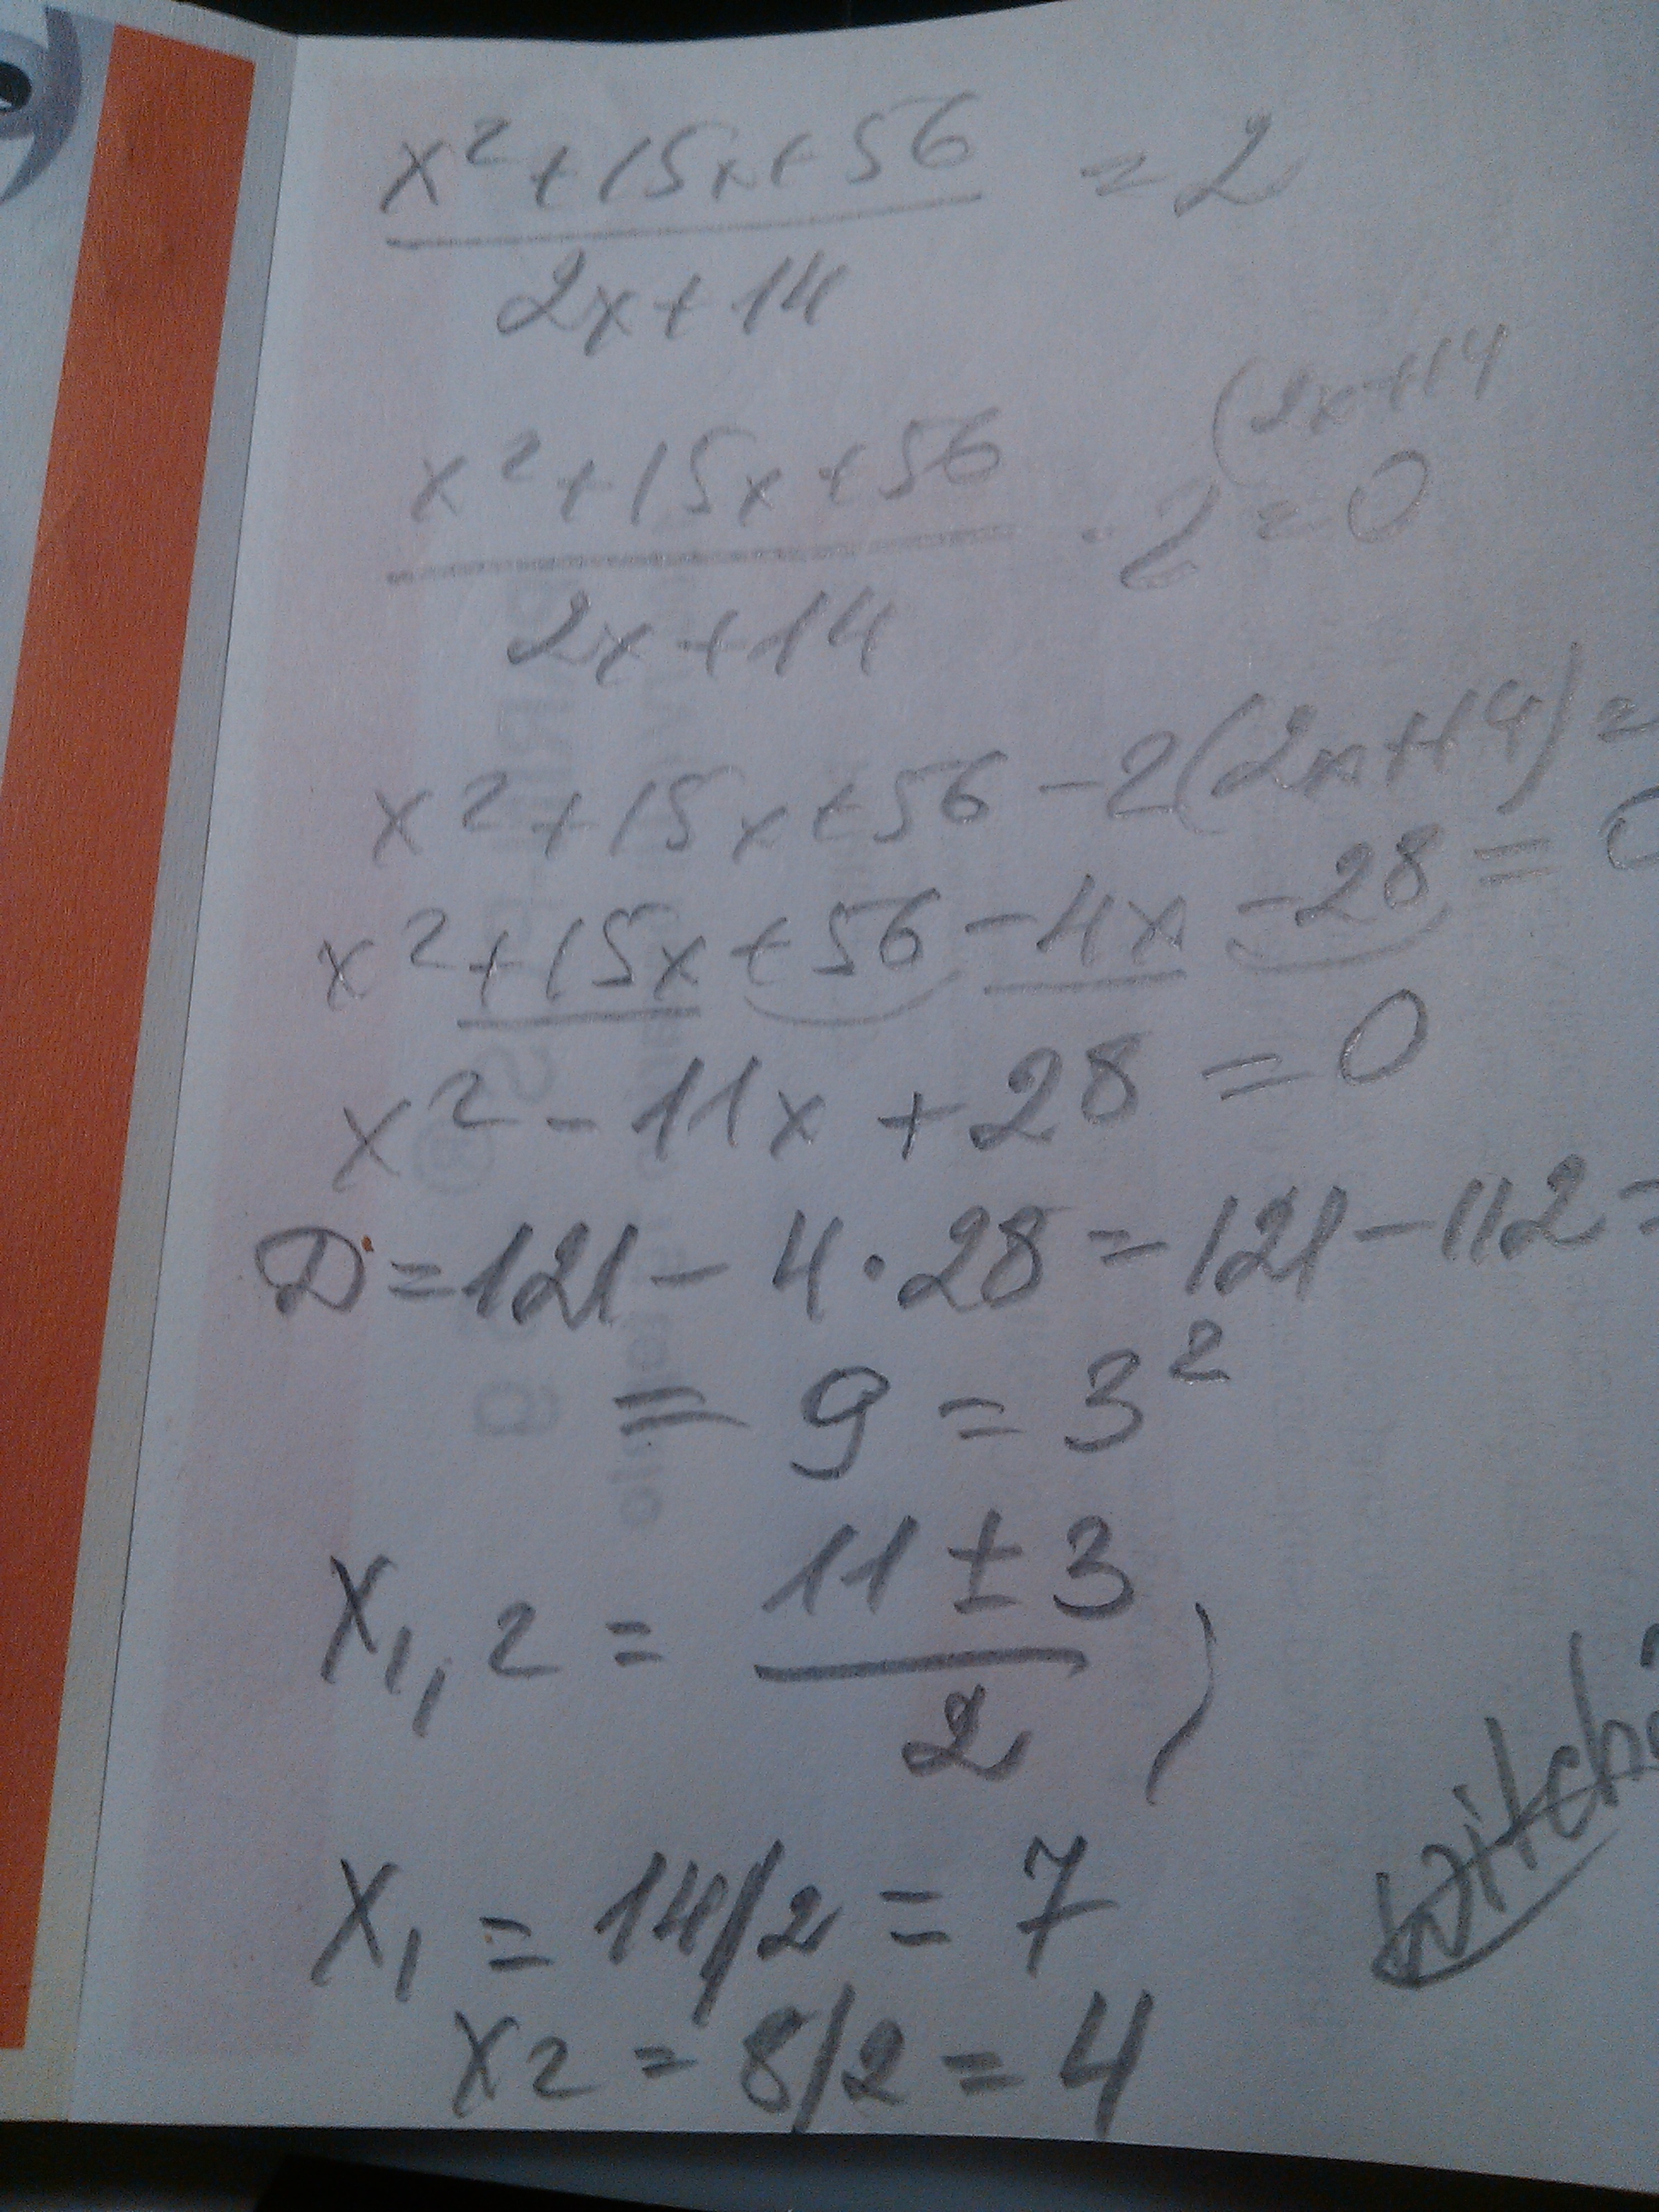 x² + 15x + 56 = 2
2x + 14
(2x + 14
x² + 15x + 56 - 2 = 0
2x + 14
x² + 15x + 56 - 2(2x + 14) =
x² + 15x + 56 - 4x - 28 = 0
x² - 11x + 28 = 0
D = 121 - 4 · 28 = 121 - 112 =
= 9 = 3²
x₁,₂ = 11 ± 3
2 )
x₁ = 14/2 = 7
x2 = 8/2 = 4